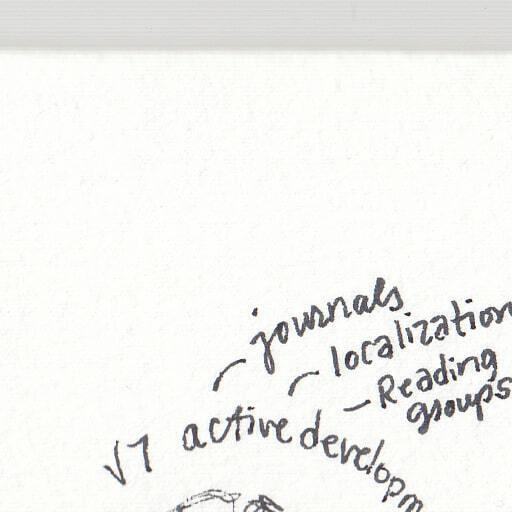 journals
localization
Reading
groups
V1 active developm